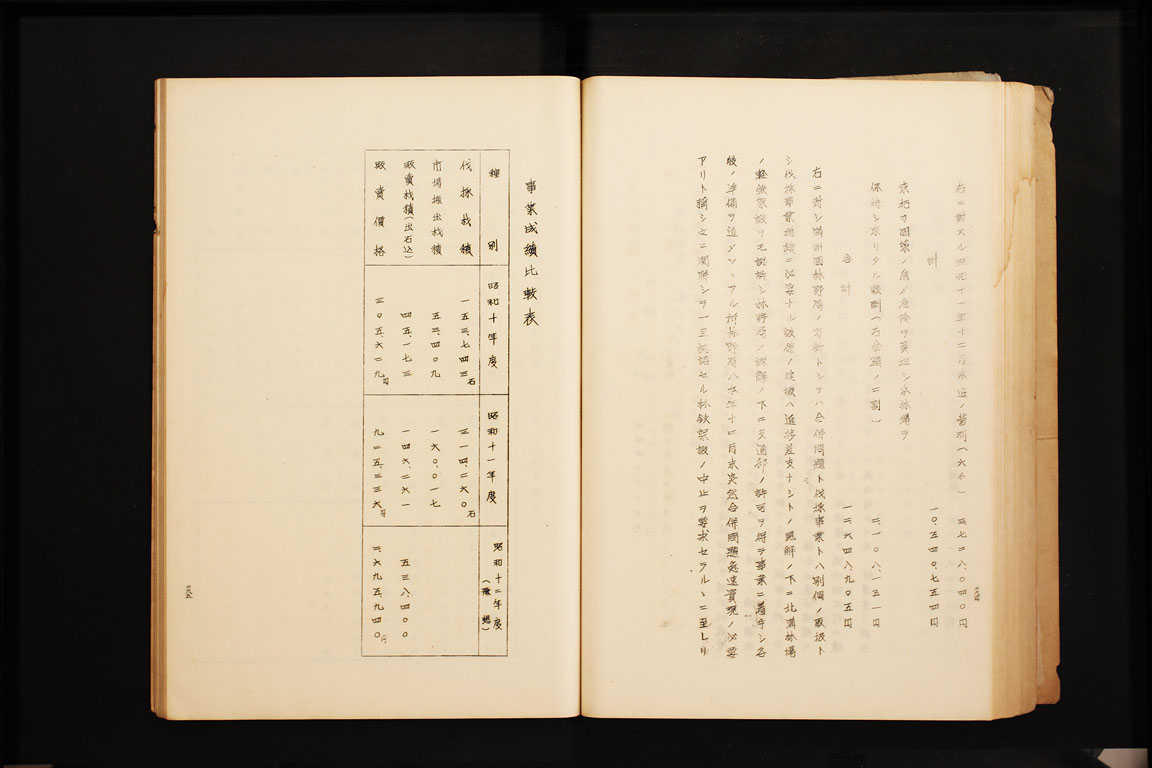 右ニ對スル昭和十一年十二月末迄ノ營利(六分) 三、七二八、〇四〇円
計 一〇、五四〇、七五四円
京柘カ國策ノ為メ危險ヲ負担シ本林場ヲ
保持シ来リタル報酬(石全額ノ二割) 二、一〇八、一五一円
合計 一二、六四八、九〇五円
右ニ對シ満州国林野局ノ方針トシテハ合併問題ト伐採事業トハ別個ノ取扱ト
シ伐採事業継続ニ必要ナル設備ノ建設ハ進捗差支ナシトノ見解ノ下ニ北満林場
ノ軽鉄架設ヲモ認許シ林野局ノ諒解ノ下ニ交通部ノ許可ヲ得テ事業ニ着手シ各
般ノ準備ヲ進メツヽアル折林野局ハ下年十二月末突然合併問題急速實現ノ必要
アリト稱シ之ニ関聯シテ一旦認諾セル林鉄架設ノ中止ヲ要求セラルヽニ至レリ
二六四
事業成績比較表
種別 昭和十年度 昭和十一年度 昭和十二年度(豫想)
伐採材積 一五三、七四三石 三一四、二六〇石
市場搬出材積 五三、四〇九 一六〇、〇一七
販賣材積(出石込) 四五、一七三 一四六、二六一 五三八、四〇〇
販賣價格 三〇五、六二九円 九二五、三三六円 三、六九五、九四〇円
二六五